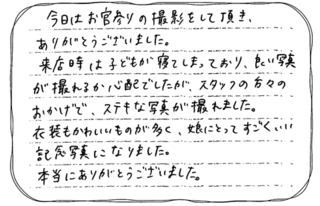 今日はお宮参りの撮影をして頂き、
ありがとうございました。
来店時は子どもが寝てしまっており、良い写真
が撮れるか心配でしたが、スタッフの方々の
おかげで、ステキな写真が撮れました。
衣装もかわいいものが多く、娘にとってすごくいい
記念写真になりました。
本当にありがとうございました。